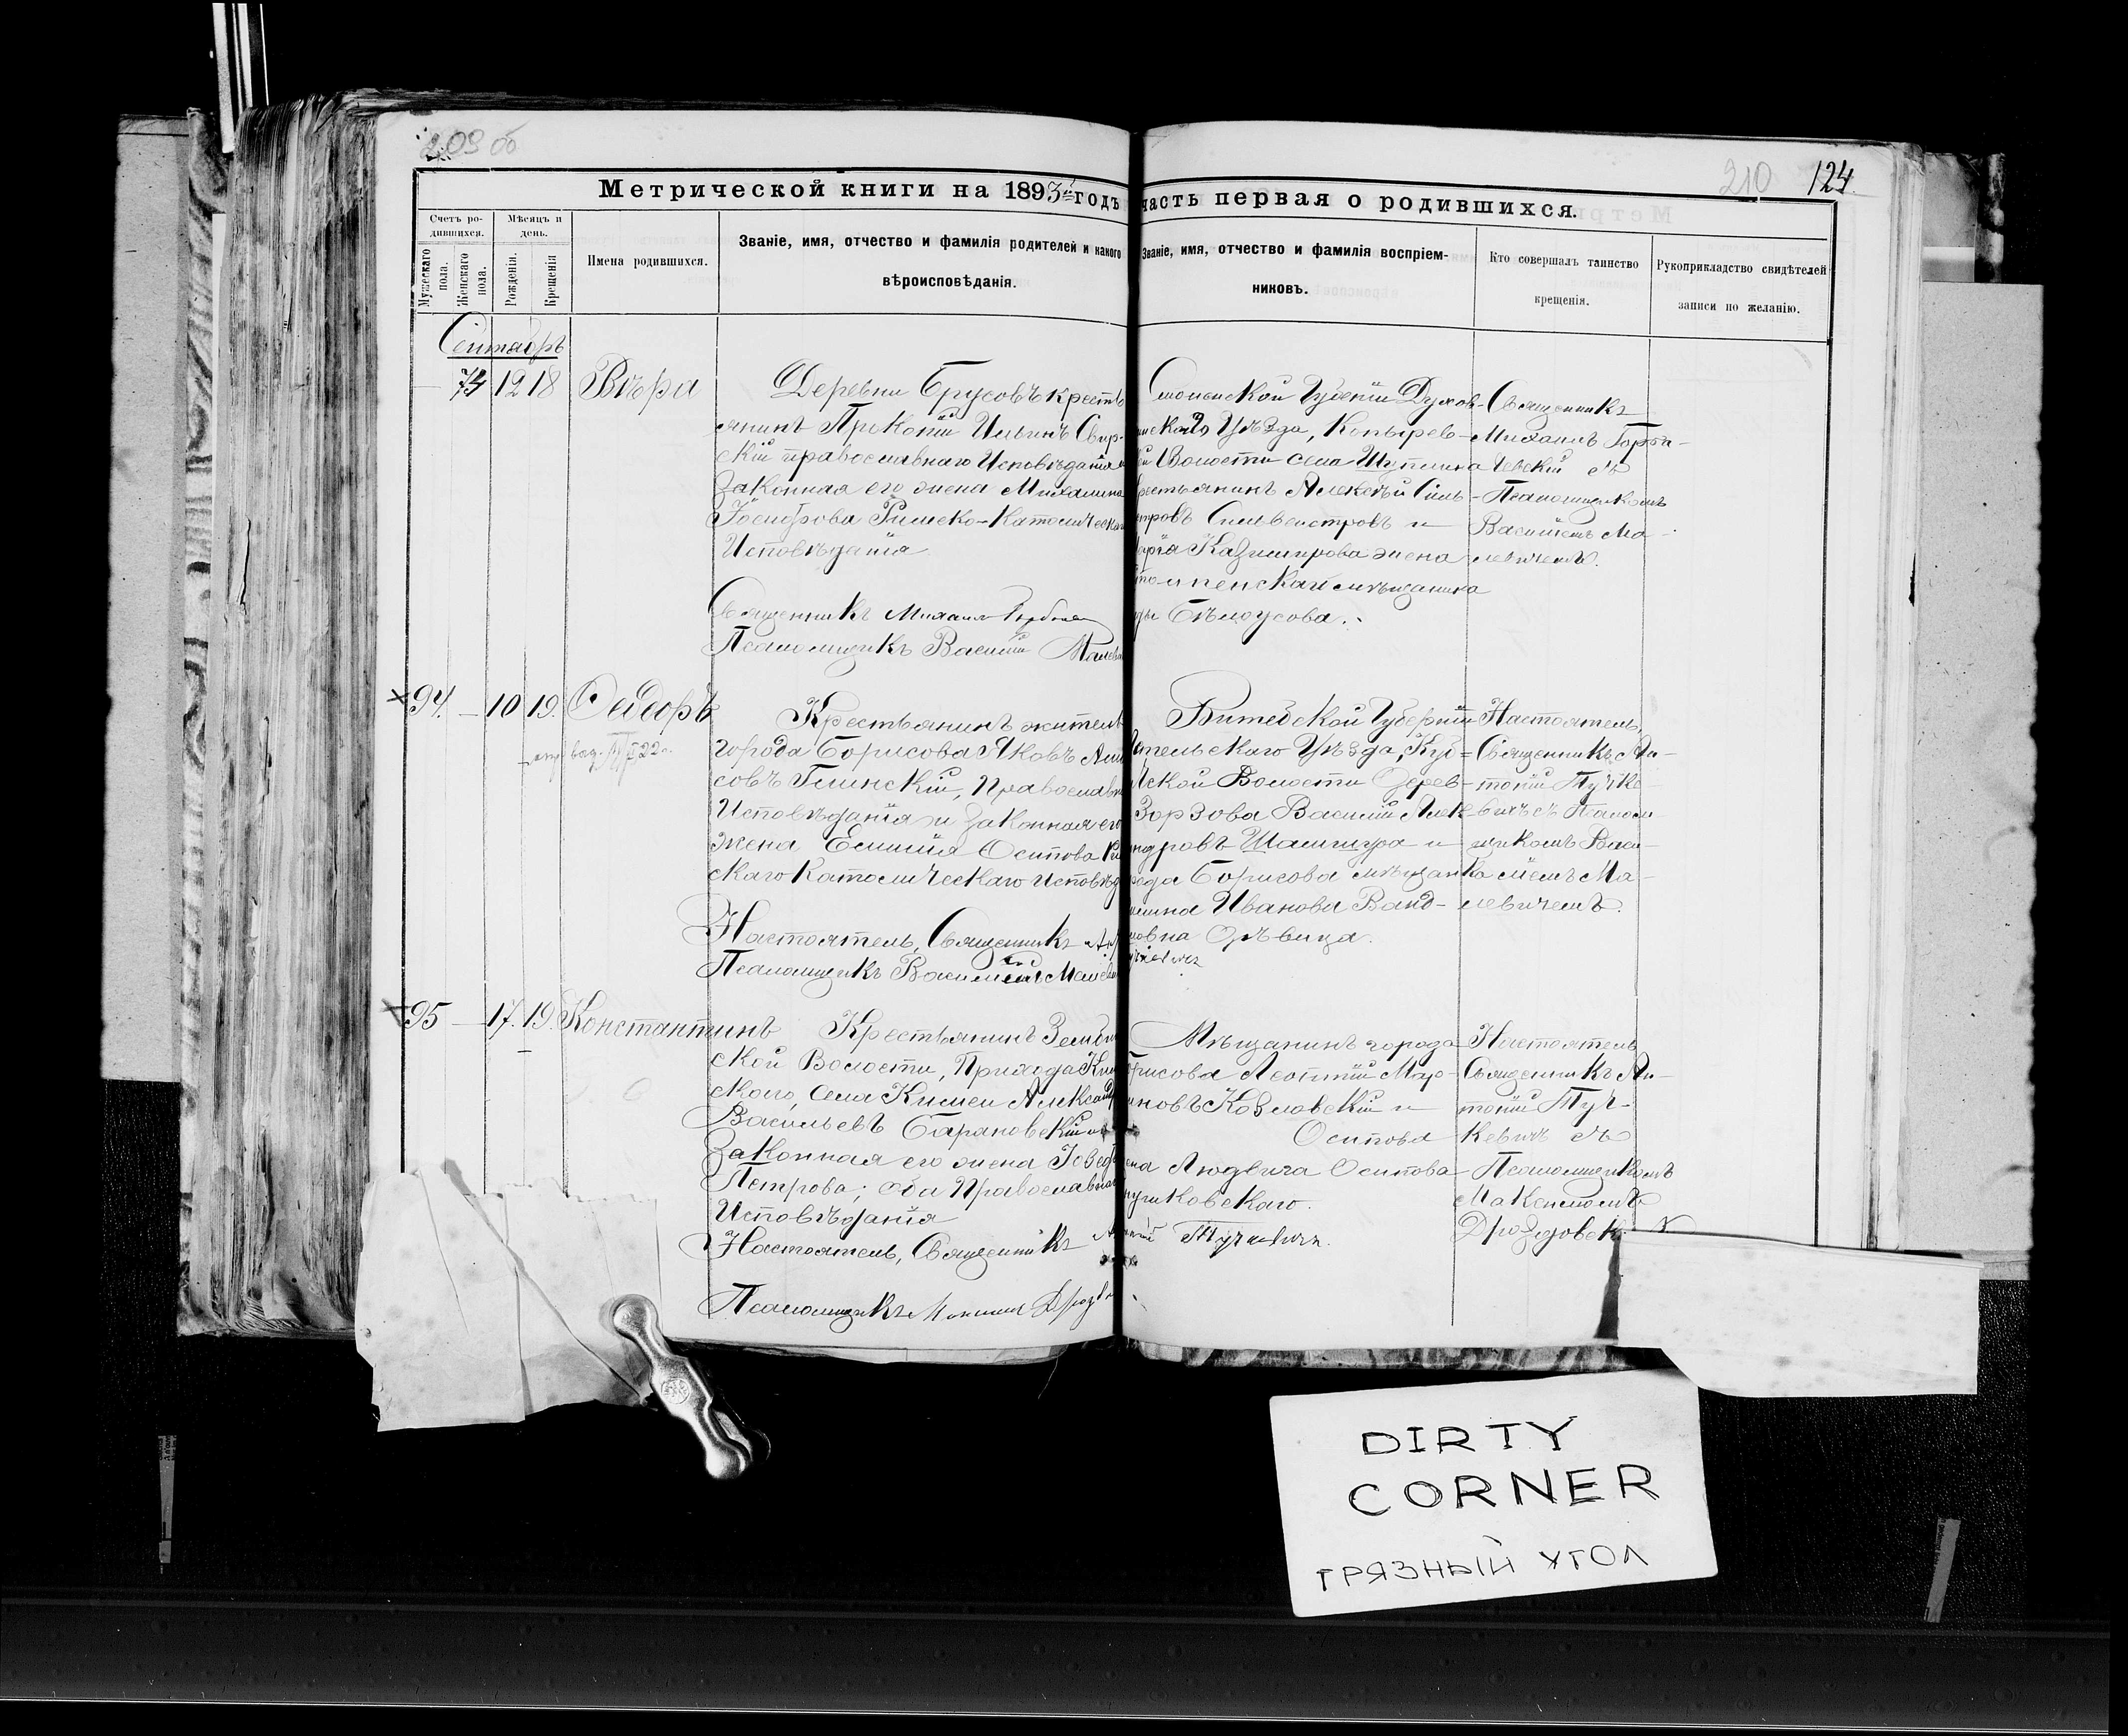 209 об
210 124.
Метрической книги на 1893й годъ часть первая о родившихся.
Счетъ родившихся.
Мужескаго пола.
Женскаго пола.
Мѣсяцъ и день.
Рожденія.
Крещенія
Имена родившихся.
Званіе, имя, отчество и фамилія родителей и какого
вѣроисповѣданія.
Званіе, имя, отчество и фамилія воспріем-
никовъ.
Кто совершалъ таинство
крещенія.
Рукоприкладство свидѣтелей
записи по желанію.
Сентябрь
74 12 18 Вѣра
Деревни Брусовъ кресть
янинъ Прокопій Ильинъ Свир-
скій православнаго Исповѣданія и
законная его жена Михалина
Іосифова Римско-Католическаго
Исповѣданія
Священникъ Михаилъ
Псаломщикъ Василій Малеви
Смоленской Губерніи Духов-
Уѣзда, Копырев-
Волости села Шуплина
рестьянинъ Алексѣй Силь-
тровъ Сильвестровъ и
арія Казимирова жена
мѣщанина
Бѣлоусова.
Священникъ
Михаилъ Горба-
чевскій съ
Псаломщикомъ
Василіемъ Ма-
левичемъ.
94. 10 19. Ѳеодоръ
Крестьянинъ житель
города Борисова Яковъ
совъ Глинскій, Православн
Исповѣданія и законная его
жена Емилія Осипова Ри
скаго Католическаго Исповѣд
Настоятель, Священникъ
Псаломщикъ Василій Малеви
Витебской Губерніи
пельскаго Уѣзда,
ской Волости Дерев-
Зорзова Василій Алек-
ндровъ Шашура и
рода Борисова мѣщанка
Иванова Ванд-
Дѣвица.
Настоятель,
Священникъ Ан-
тоній Тучке-
вичъ съ Псалом-
щикомъ Васи-
ліемъ Ма-
левичемъ.
95 17. 19. Константинъ
Крестьянинъ Земби
ской Волости, Прихода Ки
скаго, Села Кимеи Александр
Васильевъ Барановскій и
законная его жена
Петрова; оба Православнаго
Исповѣданія
Настоятель, Священникъ Антоній Тучкевичъ.
Псаломщикъ Дрозд
Мѣщанинъ города
орисова Леонтій Мар-
иновъ Козловскій и
Осипова
ена Людвига Осипова
Настоятель
Священникъ Ан-
тоній Туч-
кевичъ съ
Псаломщикомъ
Дроздовск.
DIRTY
CORNER
ГРЯЗНЫЙ УГОЛ